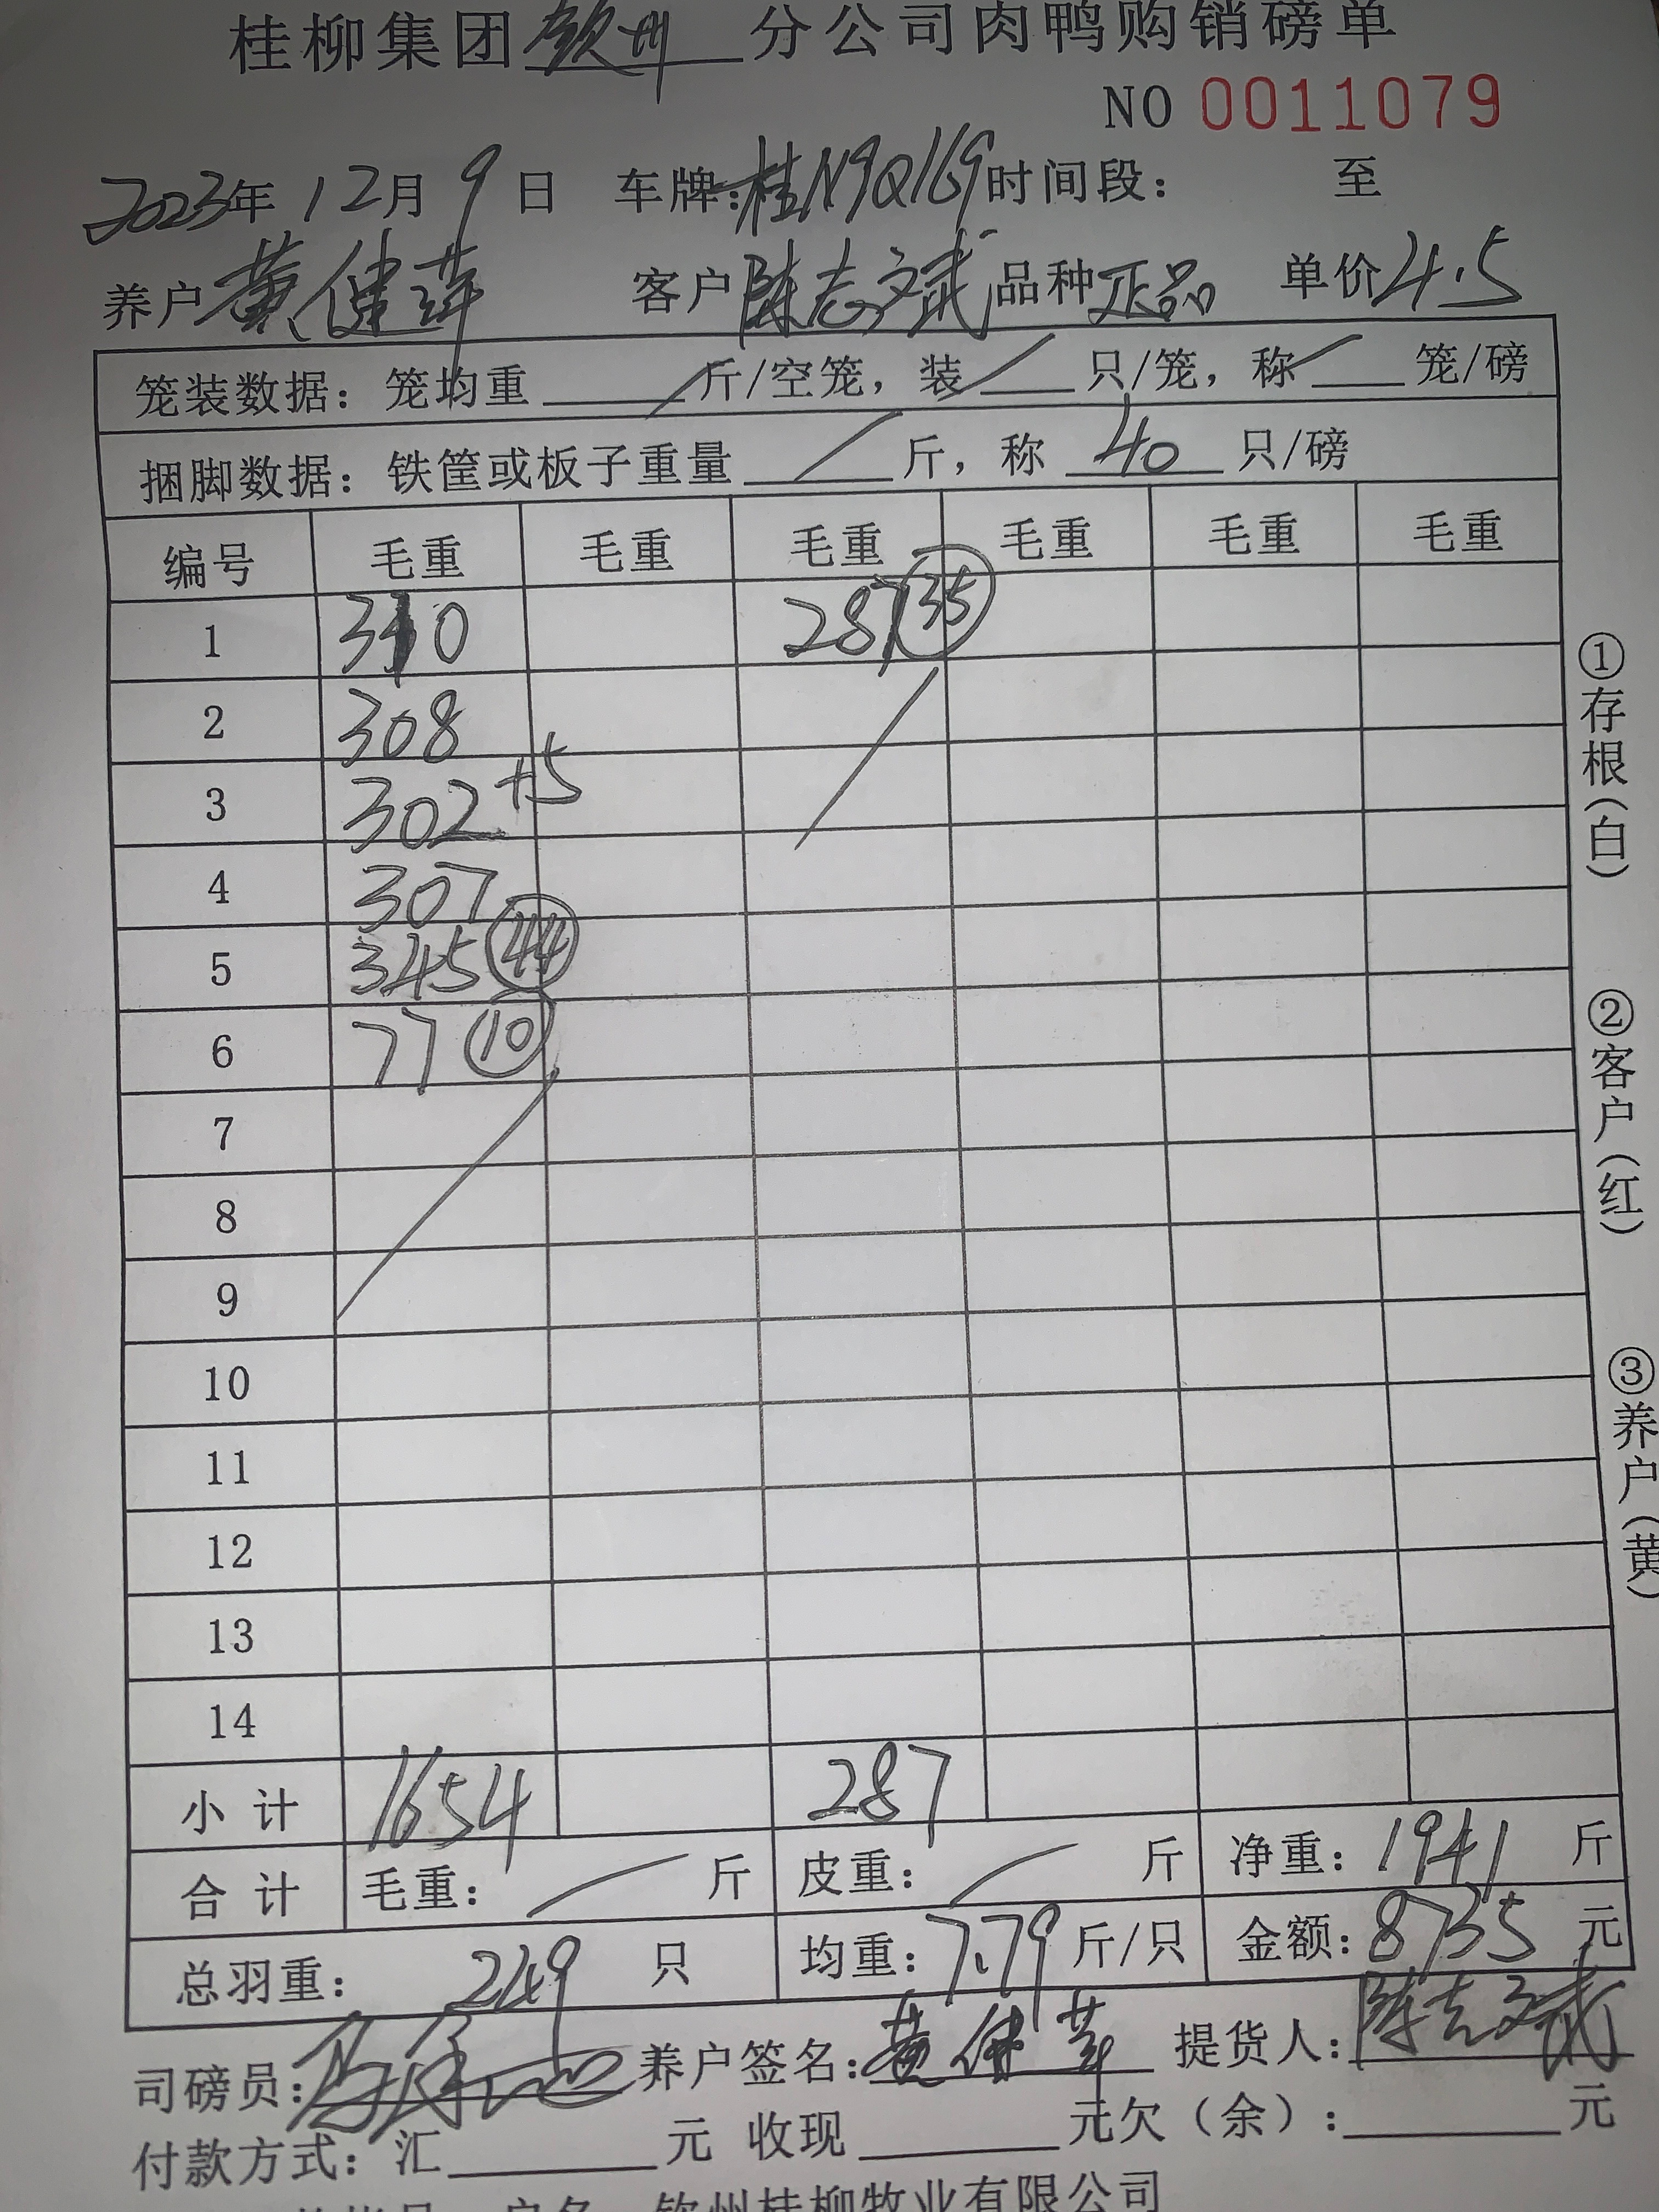 桂柳集团钦州分公司肉鸭购销磅单
NO 0011079
2023年 12月 9日 车牌:桂N9Q169 时间段: 至
养户 黄健萍 客户 陈志斌 品种 正品 单价 4.5
笼装数据: 笼均重 / 斤/空笼, 装 / 只/笼, 称 / 笼/磅
捆脚数据: 铁筐或板子重量 / 斤, 称 40 只/磅
编号 毛重 毛重 毛重 毛重 毛重 毛重
1 310 287 35
2 308
3 302 +5
4 307
5 345 44
6 77 10
7
8
9
10
11
12
13
14
小计 1654 287
合计 毛重: / 斤 皮重: / 斤 净重: 1941 斤
总羽重: 249 只 均重: 7.79 斤/只 金额: 8735 元
司磅员: 养户签名: 黄健萍 提货人: 陈志斌
付款方式: 汇 元 收现 元欠(余): 元
户名 钦州桂柳牧业有限公司
①存根(白)
②客户(红)
③养户(黄)